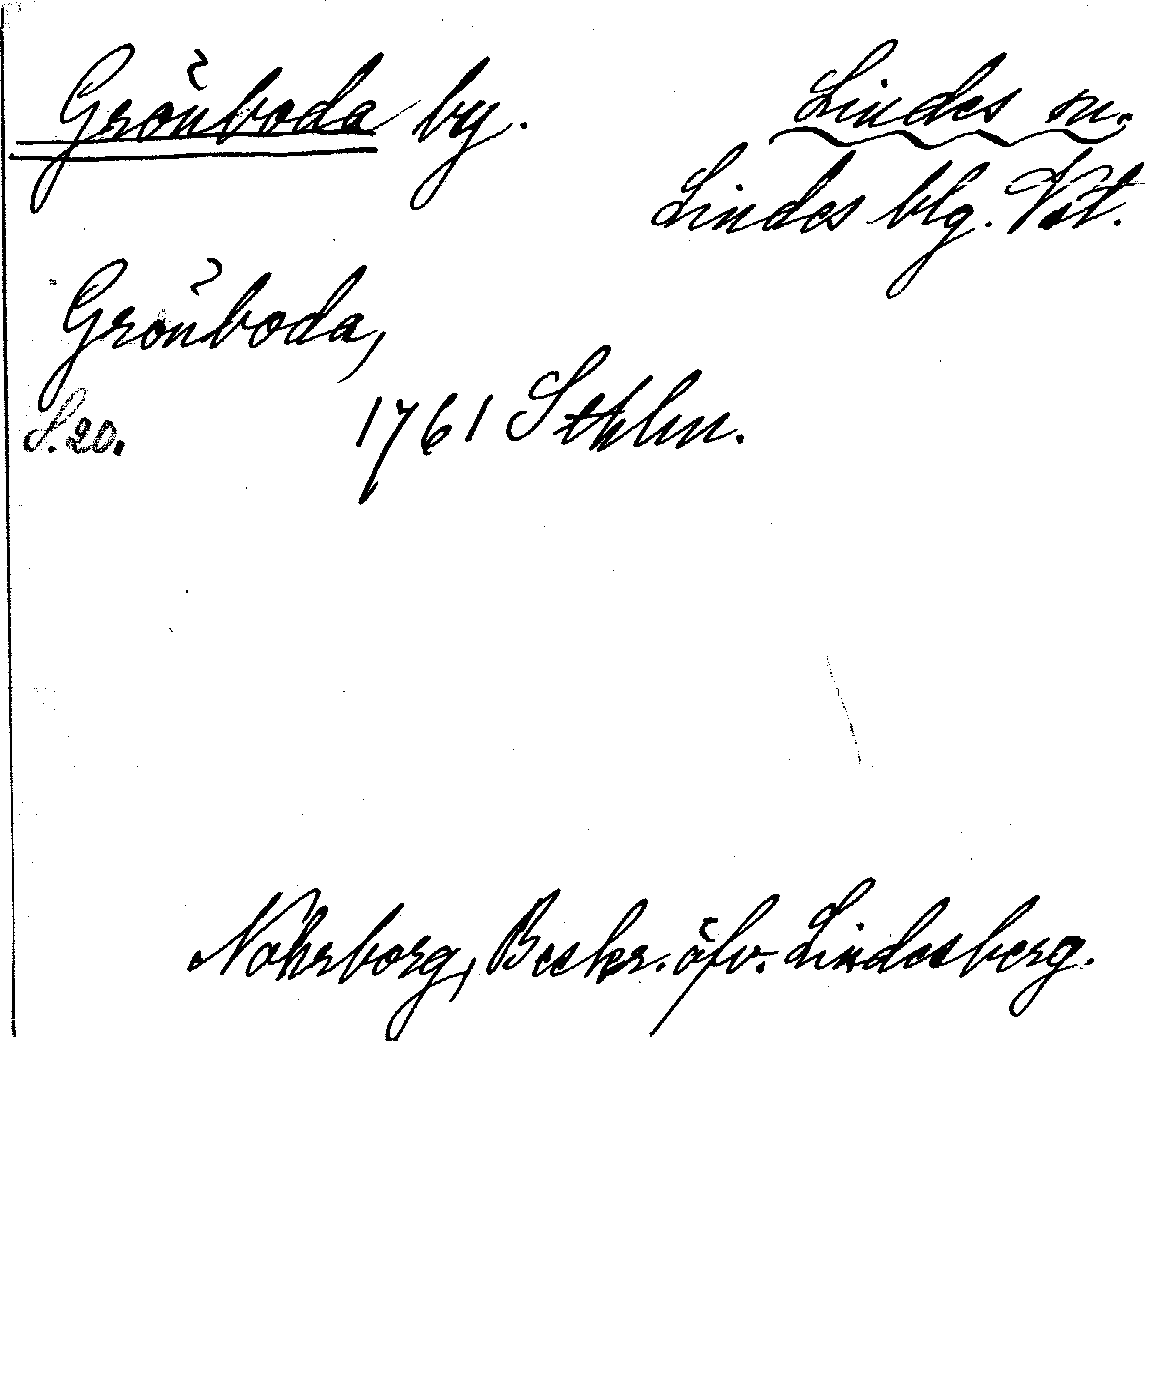 Grönboda by.
Lindes sn.
Lindes blg. Vstl.
Grönboda,
S. 20.
1761 Sthlm.
Nohrborg, Beskr. öfv. Lindesberg.